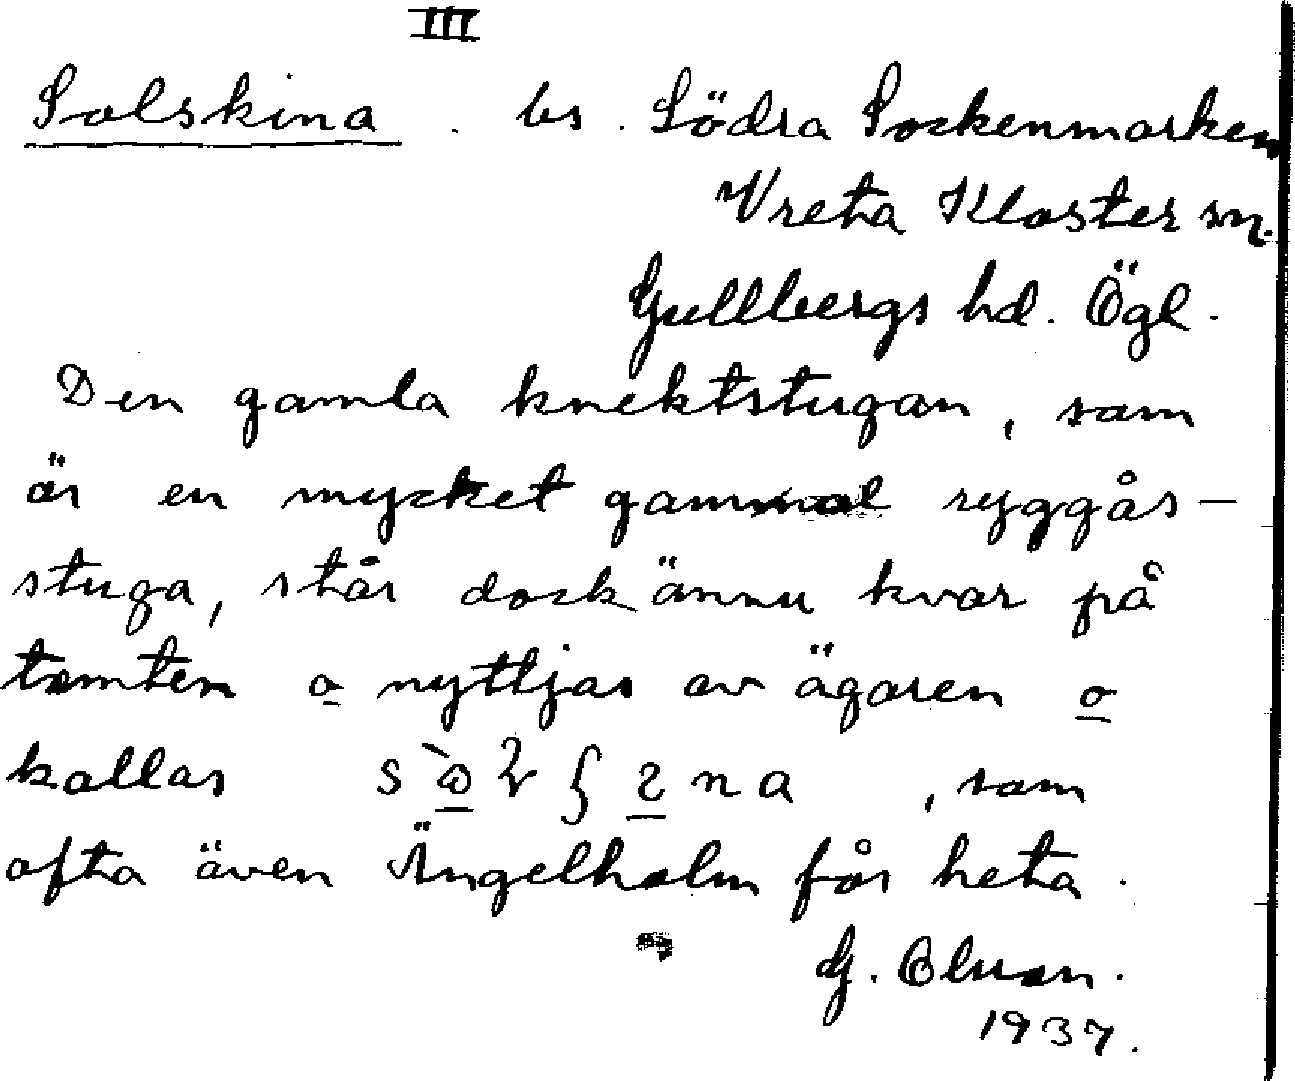 III
Solskina . bs . Södra Sockenmarken
Vreta Kloster sn.
Gullbergs hd. Ögl.
Den gamla knektstugan, som
är en mycket gammal ryggås-
stuga, står dock ännu kvar på
tomten o nyttjas av ägaren o
kallas , som
ofta även Ängelholm får heta.
G.
1937.